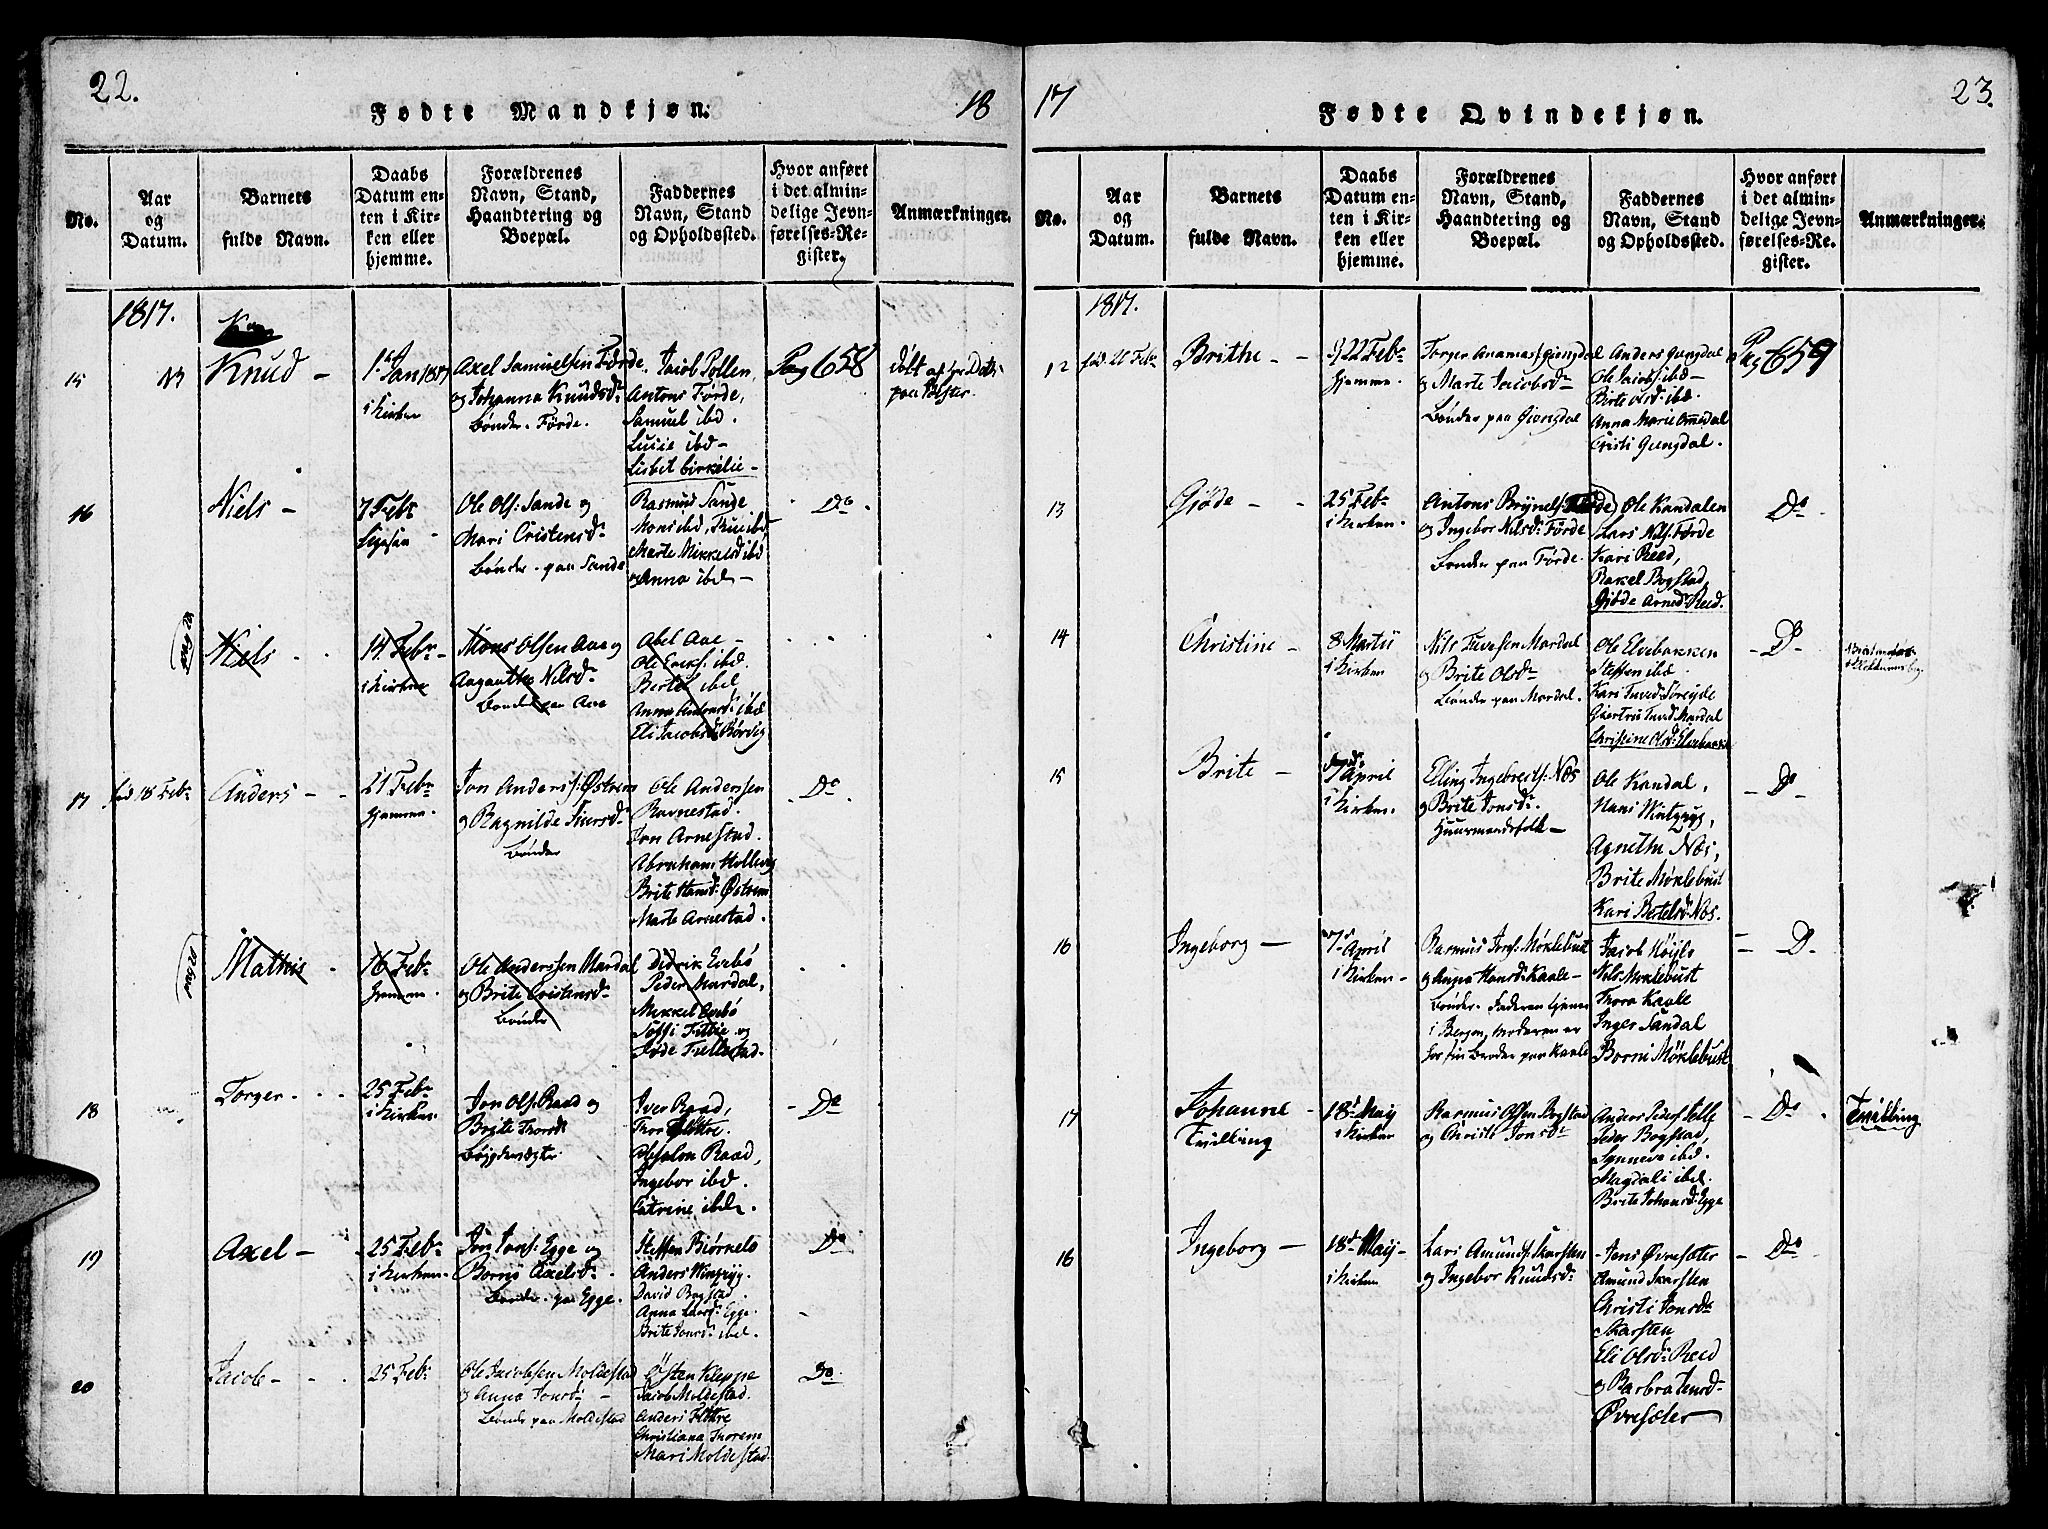 22.
Fødte Mandkjøn.
18
No.
Aar
og
Datum.
Barnets
fulde Navn.
Daabs
Datum en-
ten i Kir-
ken eller
hjemme.
Forældrenes
Navn, Stand,
Haandtering og
Boepæl.
Faddernes
Navn, Stand
og Opholdssted.
Hvor anført
i det almin-
delige Jevn-
førelses-Re-
gister.
Anmærkninger.
1817.
15
Knud -
1
Jan 1817
i Kirken
Axel Samuelsen Førde
og Johanna Knudsdr
Bønder. Førde.
Jacob Pollen,
Antons Førde,
Samuel ibd.
Lucie ibd -
Lisbet Birkelie -
Pag 658
døbt af
16
Niels -
7 Febr
Ole Ols: Sande og
Mari Cristensdr
Bønder paa Sande
Rasmus Sande
Mons ibd,
Marte Mikkelsd ibd
og Anna ibd -
Do.
Niels
14. Febr -
i Kirken
Mons Olsen Aae og
Aaganthe Nilsdr
Bønder paa Aae
Abel Aae -
Ole Ericks: ibd.
Bertel ibd
Anna Andersd: ibd
Eli Jacobsd: Børvig
17
fød 18 Febr
Anders -
21 Febr
hjemme.
Jon Anders: Østrem
og Ragnilde Iversdr
Bønder
Ole Anderssen
Ravnestad.
Jon Arnestad.
Abraham Hollevig
Brite Hansd: Østrem
Marte Arnestad.
Do.
Mathis
16 Febr
hjemme.
Ole Anderssen Mardal
og Brite Cristensdr
Bønder
Didrik Evebø
Peder Mardal,
Mikkel Evebø
Søffi Fitkie og
Jøde Tiellestad.
18
Torger
25 Febr
i Kirken
Jon Ols: Raad og
Brite Thorsdr
Iver Raad,
Thor Fløttre.
Absalon Raad,
Ingebor ibd.
Catrine ibd.
Do
19
Axel -
25 Febr
i Kirken.
Jon Jons: Egge og
Borni Axelsdr
Bønder paa Egge.
Steffen Biørnelo
Anders Wingsyg.
David Bogstad.
Anna Larsd: Egge.
Brite Jonsd: ibd.
Do
20
Jacob -
25 Febr
Ole Jacobsen Moldestad
og Anna Jonsdr -
Bønder paa Moldestad
Østen Kleppe
Jacob Moldestad.
Anders Fløtre
Christiana Thorem
Mari Moldestad.
Do.
17
23.
Fødte Qvindekjøn.
No.
Aar
og
Datum.
Barnets
fulde Navn.
Daabs
Datum en-
ten i Kir-
ken eller
hjemme.
Forældrenes
Navn, Stand,
Haandtering og
Boepæl.
Faddernes
Navn, Stand
og Opholdssted.
Hvor anført
i det almin-
delige Jevn-
førelses-Re-
gister.
Anmærkninger.
1817.
12
fød 20 Febr
Brithe -
22 Febr
hjemme.
Torger Ananias: Giengdal
og Marte Jacobsdr
Bønder paa Giengdal
Anders Gengdal
Ole Jacobs: ibd -
Birte Olsd: ibd.
Anna Marie Omedal
Cristi Gengdal.
Pag 659
13
Gjøde -
25 Febr
i Kirken.
Antons Brynels: Førde
og Ingebor Nilsdr Førde
Bønder paa Førde.
Ole Kandalen
Lars Nils: Førde
Kari Reed,
Rakel Bogstad
Gjøde Arnesd: Reed.
Do
14
Christine -
8 Martii
i Kirken
Nils Mardal
og Brite Olsdr
Bønder paa Mardal.
Ole Elvebakken
Steffen ibd
Christine Olsd: Elvebakke
- Do -
15
Brite -
7 April
i Kirken.
Elling Ingebreits: Nøs
og Brite Jonsdr.
Huusmandsfolk -
Ole Kandal,
Agnethe Nøs,
Brite Møklebust
Kari Bertelsd: Nøs.
- Do -
16
Ingeborg -
7 April
i Kirken.
Rasmus Jons: Møklebust
og Anna Hansd: Kaale -
Bønder. Faderen tjener
i Bergen, Moderen er
hos sin Broder paa Kaale
Jacob Høylo
Nils Møklebust
Thora Kaale
Inger Sandal
Borni Møklebust
D.
17
Johanne -
Tvilling
18 May
i Kirken
Rasmus Olsen Bogstad
og Christi Jonsdr
Anders
Peder Bogstad,
Synneve ibd.
Magdali ibd.
Brite Johansd: Egge
- Do -
Tvilling
16
Ingeborg -
18 May -
i Kirken
Lars Amunds: Skarsten
og Ingebor Knudsdr
Jens Øvresæter
Amund Skarsten
Christi Jonsdr
Skarsten
Eli Olsd: Reed
og Barbra Jensdr
Øvresæter
- Do